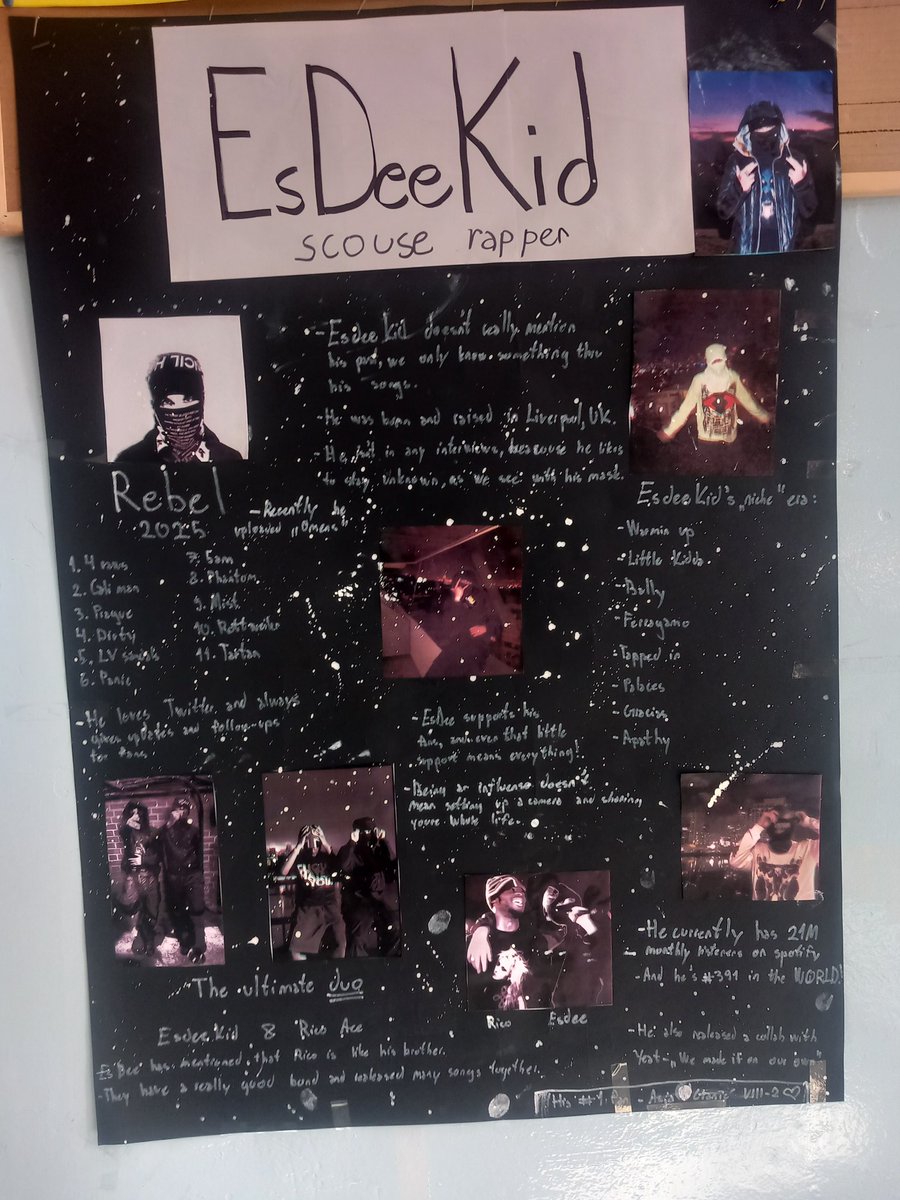 EsDeeKid
scouse rapper
- Esdee Kid doesn't really mention
his past, we only know something thru
his songs.
- He was born and raised in Liverpool, UK.
- He isn't in any interviews, beacouse he likes
to stay unknown, as we see with his mask.
Rebel
2025
- Recently he
uploaded „Omens"
1. 4 raws
2. Cali man
3. Prague
4. Dirty
5. LV sandals
6. Panic
7. 5am
8. Phantom
9. Mist
10. Rottweiler
11. Tartan
EsdeeKid's „niche" era:
- Warmin up
- Little Kidda
- Bally
- Ferragamo
- Tapped in
- Palaces
- Gracias
- Apathy
- He loves Twitter, and always
gives updates and follow-ups
for fans.
- EsDee supports his
fans, and even that little
support means everything!
- Being an influence doesn't
mean setting up a camera and sharing
youre whole life.
The ultimate duo
Rico Esdee
Esdee Kid & Rico Ace
EsDee has mentioned, that Rico is like his brother.
- They have a really good bond and realeased many songs together.
- He currently has 21M
monthly listeners on spotify
- And he's #391 in the WORLD!
- He also realeased a collab with
Yeat - „We made it on our own"
His #1 fan - VIII-2 ♡